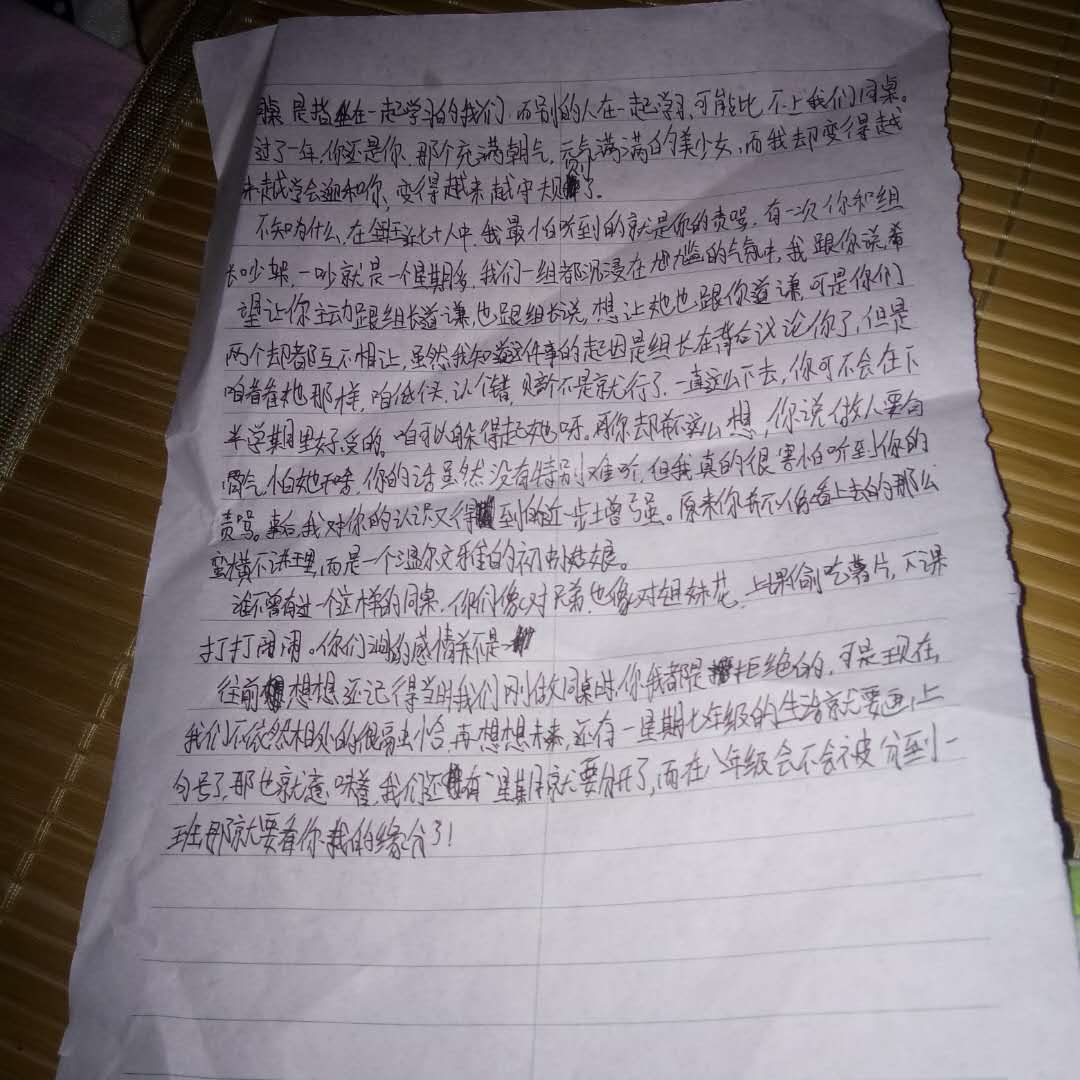 同桌是指坐在一起学习的我们,而别的人在一起学习,可能比不上我们同桌。
过了一年,你还是你,那个充满朝气,元气满满的美少女,而我却变得越
来越学会迎和你,变得越来越守规了。
不知为什么,在全班近七十人中,我最怕听到的就是你的责骂,有一次你和组
长吵架,一吵就是一个星期多,我们一组都沉浸在尴尬的气氛中,我跟你说,希
望让你主动跟组长道谦,也跟组长说,想让她也跟你道谦,可是你们
两个却都互不相让,虽然我知道这件事的起因是组长在背后议论你了,但是
咱看看她那样,咱低个头,认个错,赔个不是就行了,一直这么下去,你可不会在下
半学期里好受的。咱可以躲得起她呀。可你却并不这么想,你说做人要有
骨气,怕她干啥,你的话虽然没有特别难听,但我真的很害怕听到你的
责骂。事后,我对你的认识又得到的近一步土增强。原来你并不像看上去的那么
蛮横不讲理,而是一个温尔文雅的初中姑娘。
谁不曾有过一个这样的同桌,你们像对兄弟,也像对姐妹花,上课偷吃薯片,下课
打打闹闹。你们之间的感情并不是
往前想想,还记得当时我们刚做同桌时,你我都是拒绝的,可是现在,
我们不依然相处的很融洽,再想想未来,还有一星期七年级的生活就要画上
句号了,那也就意味着,我们还有一星期就要分开了,而在八年级会不会被分到一
班,那就要看你我的缘分了!